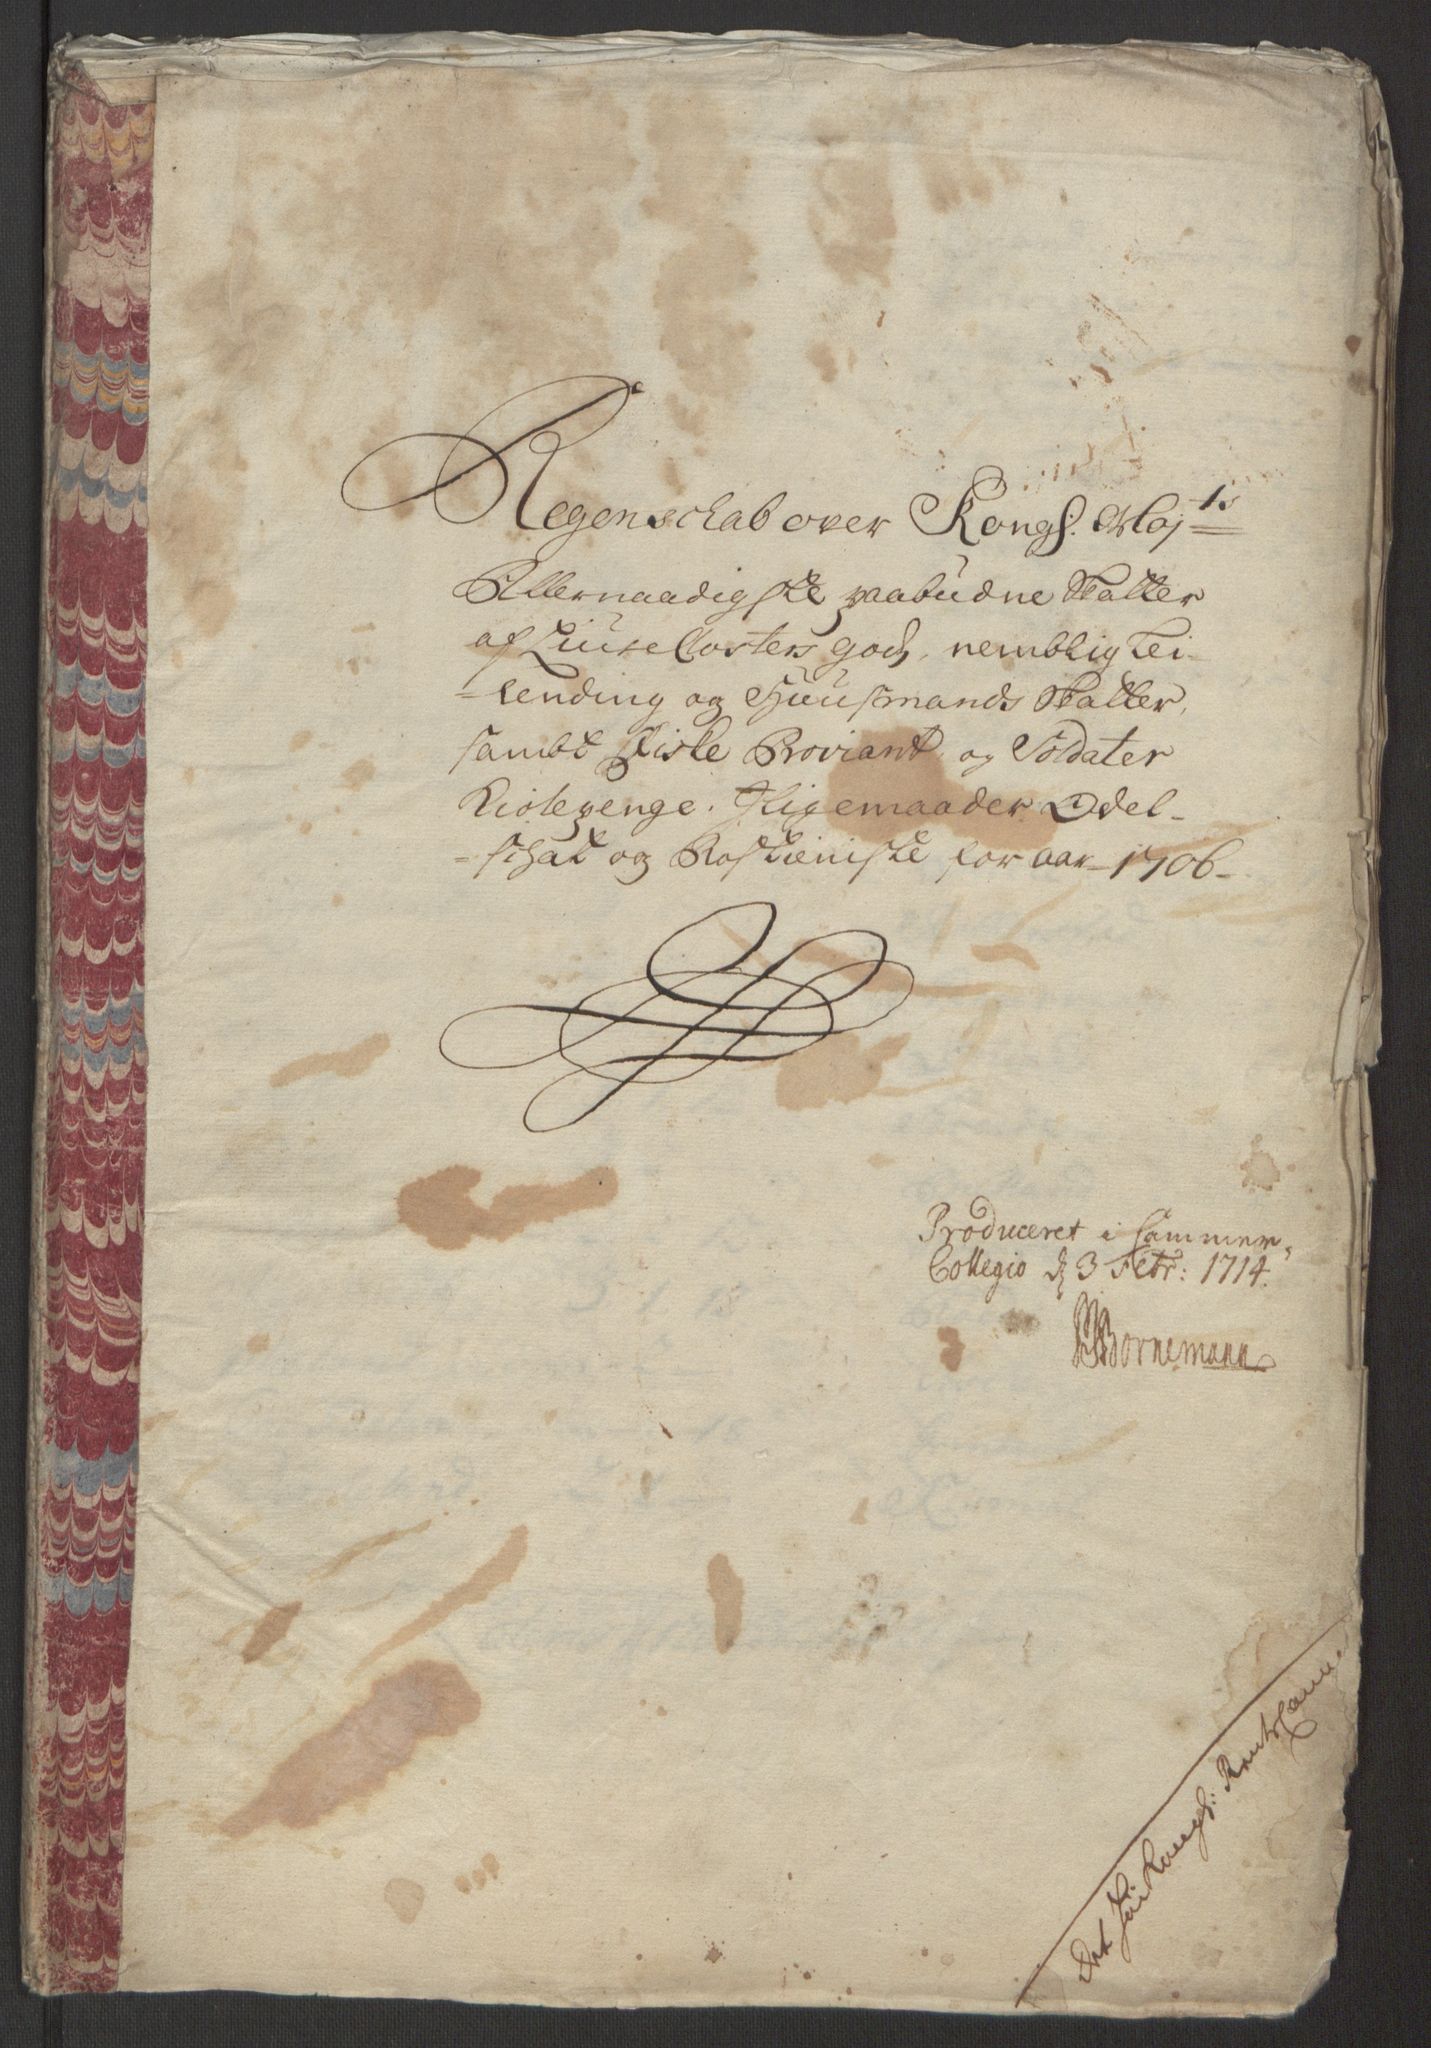 Regenschab over Kongl. Maj:ts
Allernaadigste paabudne Skatter
af Liuse Closters godz, nemblig Lei-
-lending og Huusmands Skatter,
sambt Fiske Proviant, og Soldater
Kiolepenge. Iligemaader Odel-
-schat og Rostieniste for aar 1706-
Produceret i Cammer-
Collegio d 3 Febr: 1714.
Bornemann
Det Kongl: Rente Camer